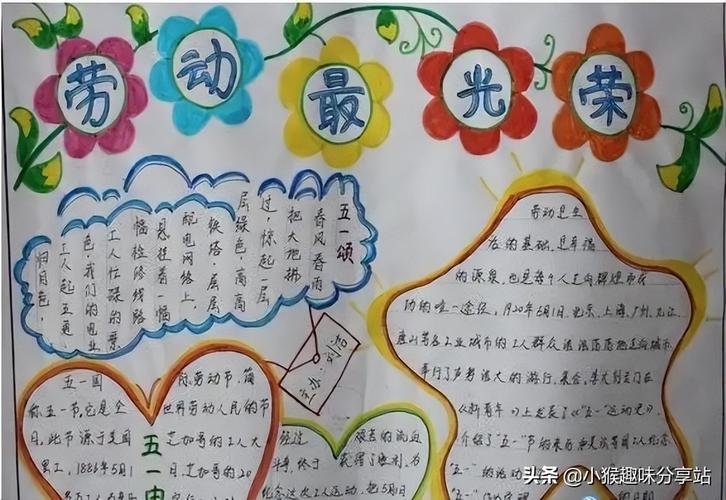 劳动最光荣
五一颂
春风春雨
把大地拂
过，惊起一层
层绿色，高高
铁塔，层层
配电网络上，
悬挂着一幅
幅检修线路
工人忙碌的景
色，我们的电业
工人起五更
归月色，
主办：刘洁
劳动是生
存的基础，是幸福
的源泉，也是每个人走向辉煌成
功的唯一途径，1920年5月1日，北京、上海、广州、九江、
唐山等各工业城市的工人群众浩浩荡荡地走向城市
举行了声势浩大的游行、集会，李大钊专门在
《新青年》上发表了《"五一"运动史》，
介绍了"五一"节的来历
"五一"的活动
五一国际劳动节，简
称五一节，它是全世界劳动人民的节
日，此节源于美国芝加哥的工人大
罢工，1886年5月1日，芝加哥的20
多万工人
五一由
经过流血
斗争，终于获得了胜利，为
纪念这次工人运动，
头条 @小猴趣味分享站